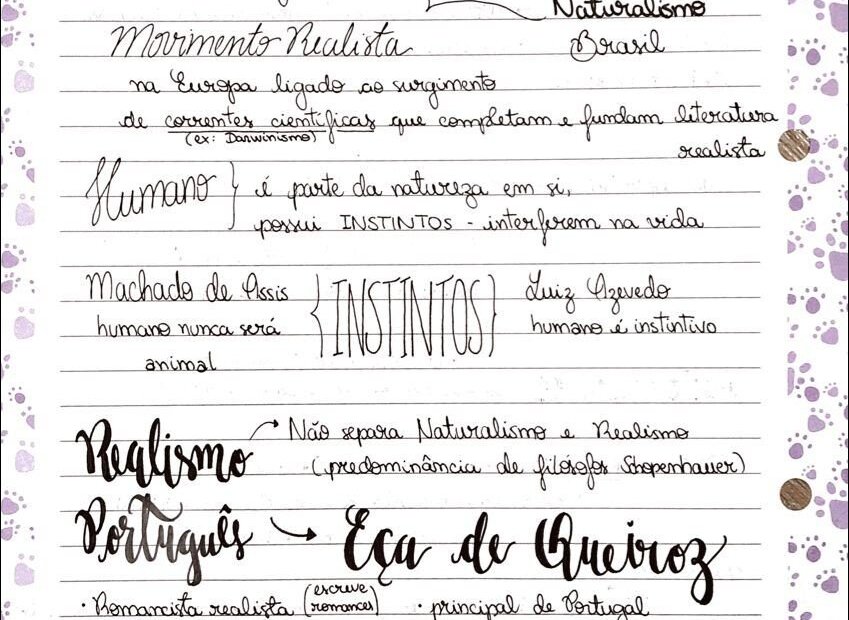 Naturalismo
Movimento Realista
Brasil
na Europa ligado ao surgimento
de correntes científicas que completam e fundam literatura
(ex: Darwinismo)
realista
Humano } é parte da natureza em si,
possui INSTINTOS - interferem na vida
Machado de Assis {INSTINTOS} Luiz Azevedo
humano nunca será
humano é instintivo
animal
Realismo → Não separa Naturalismo e Realismo
(predominância de filósofos Schopenhauer)
Português → Eça de Queiroz
· Romancista realista (escreve romances) · principal de Portugal